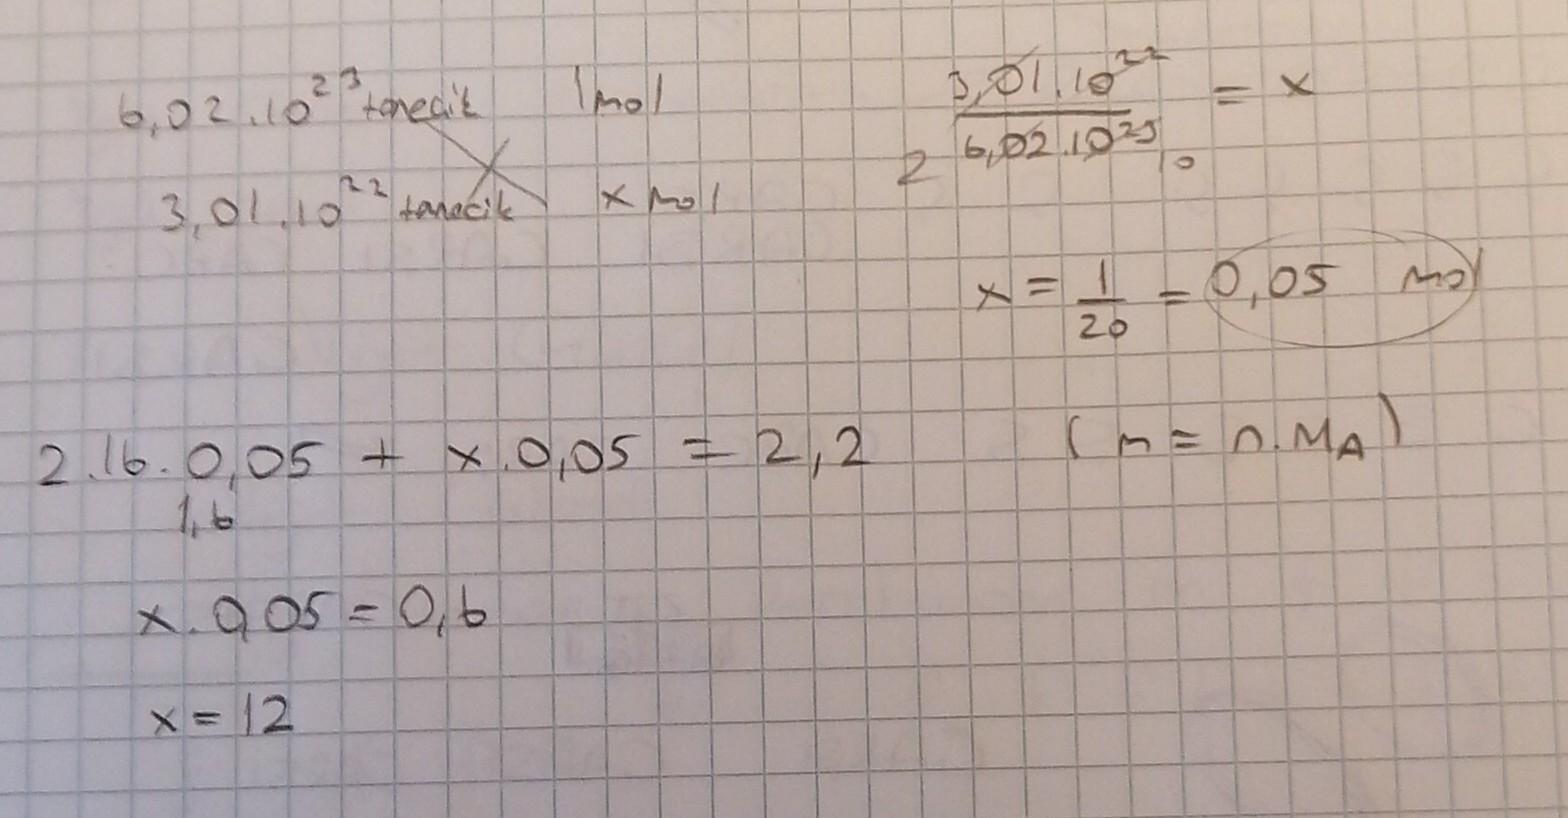 6,02.10²³ tanecik 1mol
3,01.10²² tanecik x mol
3,01.10²² / 6,02.10²³ = x
2 10
x = 1/20 = 0,05 mol
2.16.0,05 + x.0,05 = 2,2 (m = n.MA)
1,6
x.0,05 = 0,6
x = 12